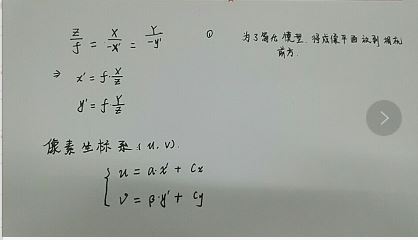 Z/f = X/-x' = Y/-y' ① 为了简化模型,将成像平面放到相机
前方.
⇒ x' = f·X/Z
y' = f·Y/Z
像素坐标系 (u, v).
u = α·x' + cx
v = β·y' + cy